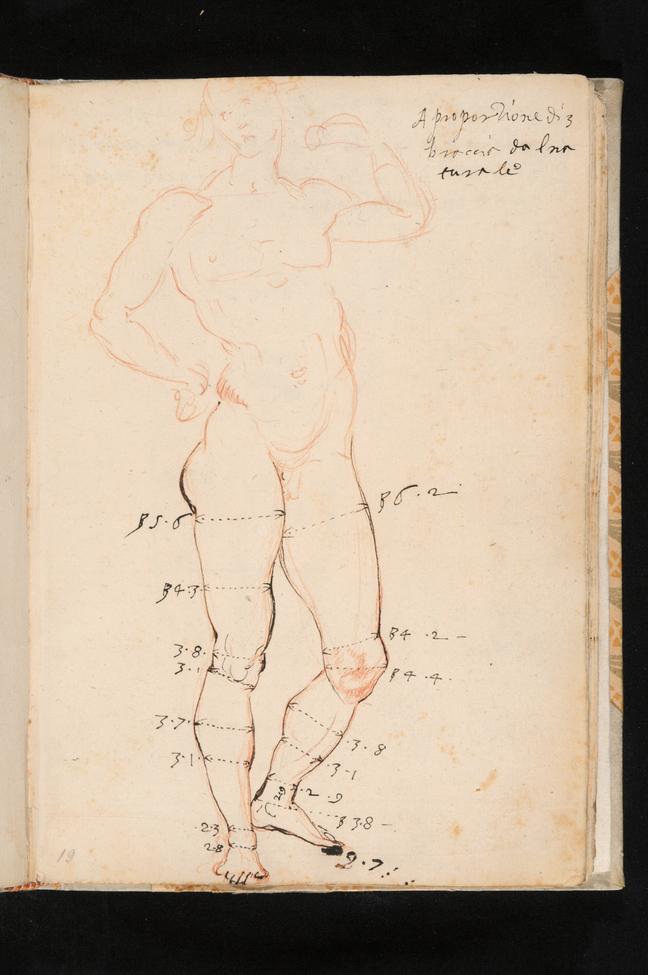 A proportione di 3
braccia da lna
turale
β5·6
β6·2
β4·3
β4·2-
3·8
3·1
β4·4·
3·7
3·8
3·1
3·1
2·9
β3·8-
2·3
2·8
9·7
19